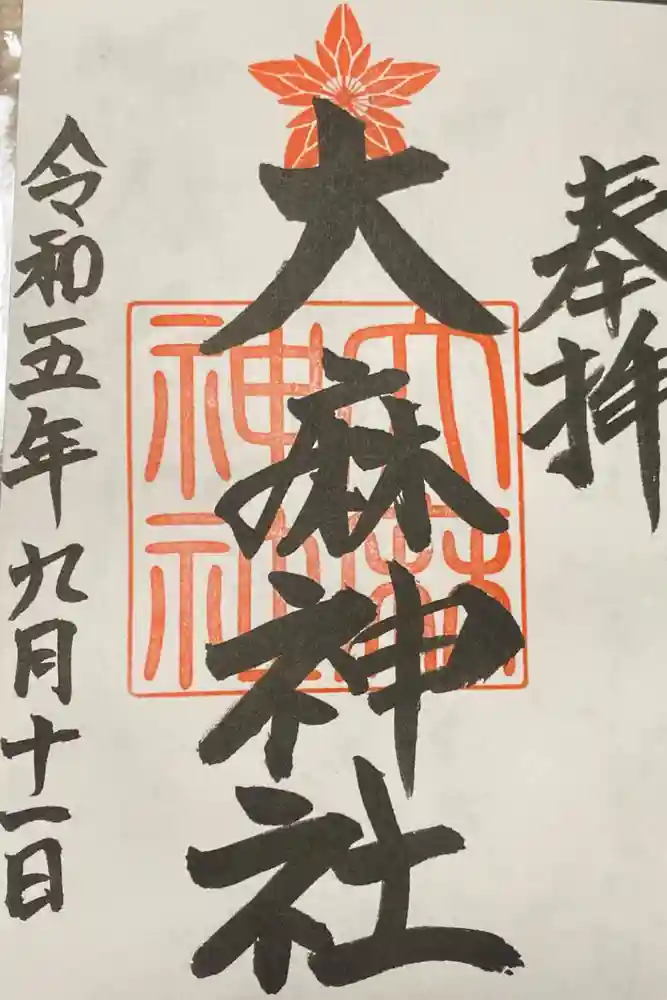 奉拝
大麻神社
大麻神社
令和五年九月十一日